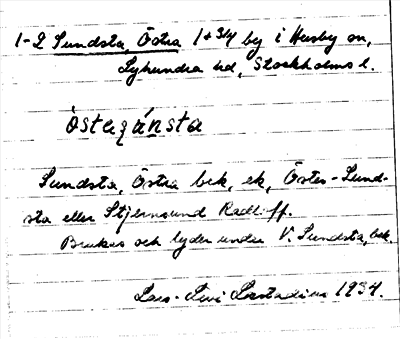 1-2 Sundsta, Östra 1+3/4 by i Husby sn,
Lyhundra hd, Stockholms l.
östaʒánsta
Sundsta, Östra bek, ek, Öster-Sund-
sta eller Stjernsund Radloff.
Brukas och lyder under V. Sundsta, bek.
Lars-Levi Læstadius 1934.